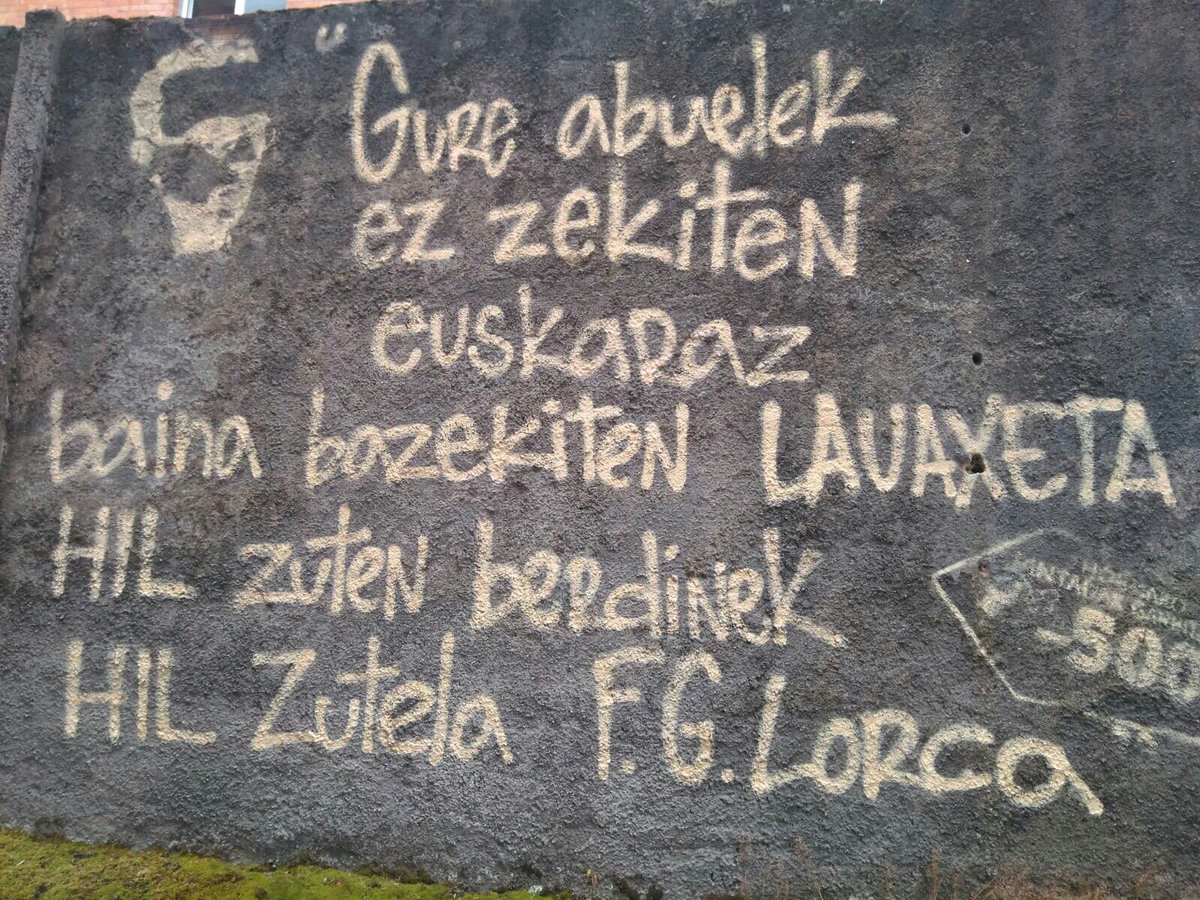 " Gure abuelek
ez zekiten
euskaraz
baina bazekiten LAUAXETA
HIL zuten berdinek
HIL Zutela F.G. Lorca
-500